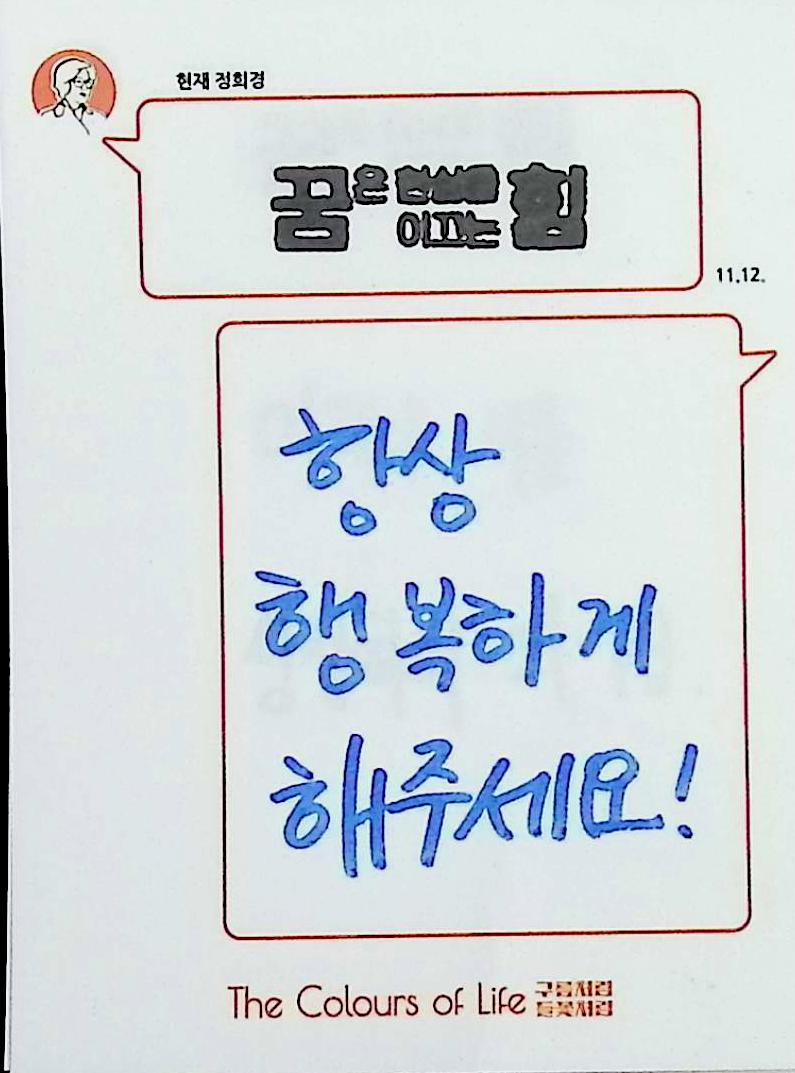 현재 정희경
꿈은 현실을
이끄는 힘
11.12.
항상
행복하게
해주세요!
The Colours of Life 구름처럼
들꽃처럼